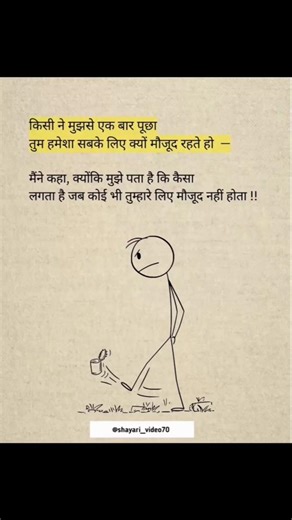 किसी ने मुझसे एक बार पूछा
तुम हमेशा सबके लिए क्यों मौजूद रहते हो —
मैंने कहा, क्योंकि मुझे पता है कि कैसा
लगता है जब कोई भी तुम्हारे लिए मौजूद नहीं होता !!
@shayari_video70